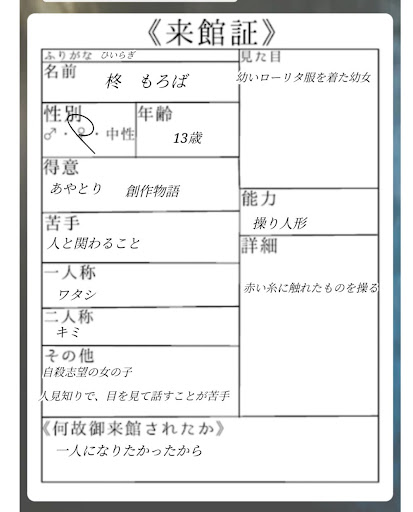 《来館証》
ふりがな ひいらぎ
名前
柊 もろば
性別
♂・♀・中性
年齢
13歳
得意
あやとり 創作物語
苦手
人と関わること
一人称
ワタシ
二人称
キミ
その他
自殺志望の女の子
人見知りで、目を見て話すことが苦手
見た目
幼いローリタ服を着た幼女
能力
操り人形
詳細
赤い糸に触れたものを操る
《何故御来館されたか》
一人になりたかったから